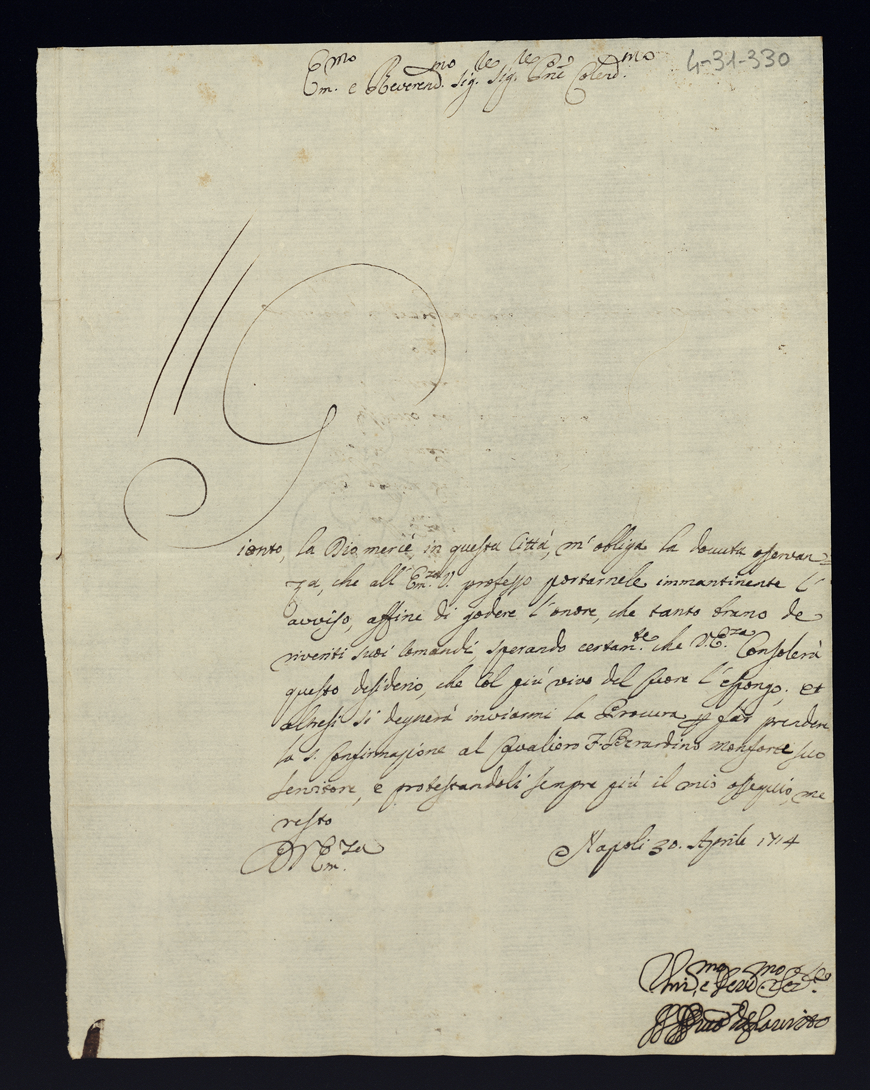 4-31-330
Em.mo e Reverend.mo Sig.le Sig.le Pne Colend.mo
Gionto, la Dio mercè, in questa Città, m'obliga la douuta osseruan=
za, che all'Em.za V. professo portarnele immantinente l'
avviso, affine di godere l'onore, che tanto bramo de
riveriti suoi Comandi sperando certam.te che V.E.za Consolerà
questo desiderio, che Col più vivo del Cuore l'espongo. et
altresì si degnerà inviarmi la Procura p far prendere
la S. Confirmazione al Cavaliero F. Berardino Monforte suo
servitore, e protestandoli sempre più il mio ossequio, me
resto
D V Em.za
Napoli 30. Aprile 1714
Um.mo, e Deuo.mo Ser.re